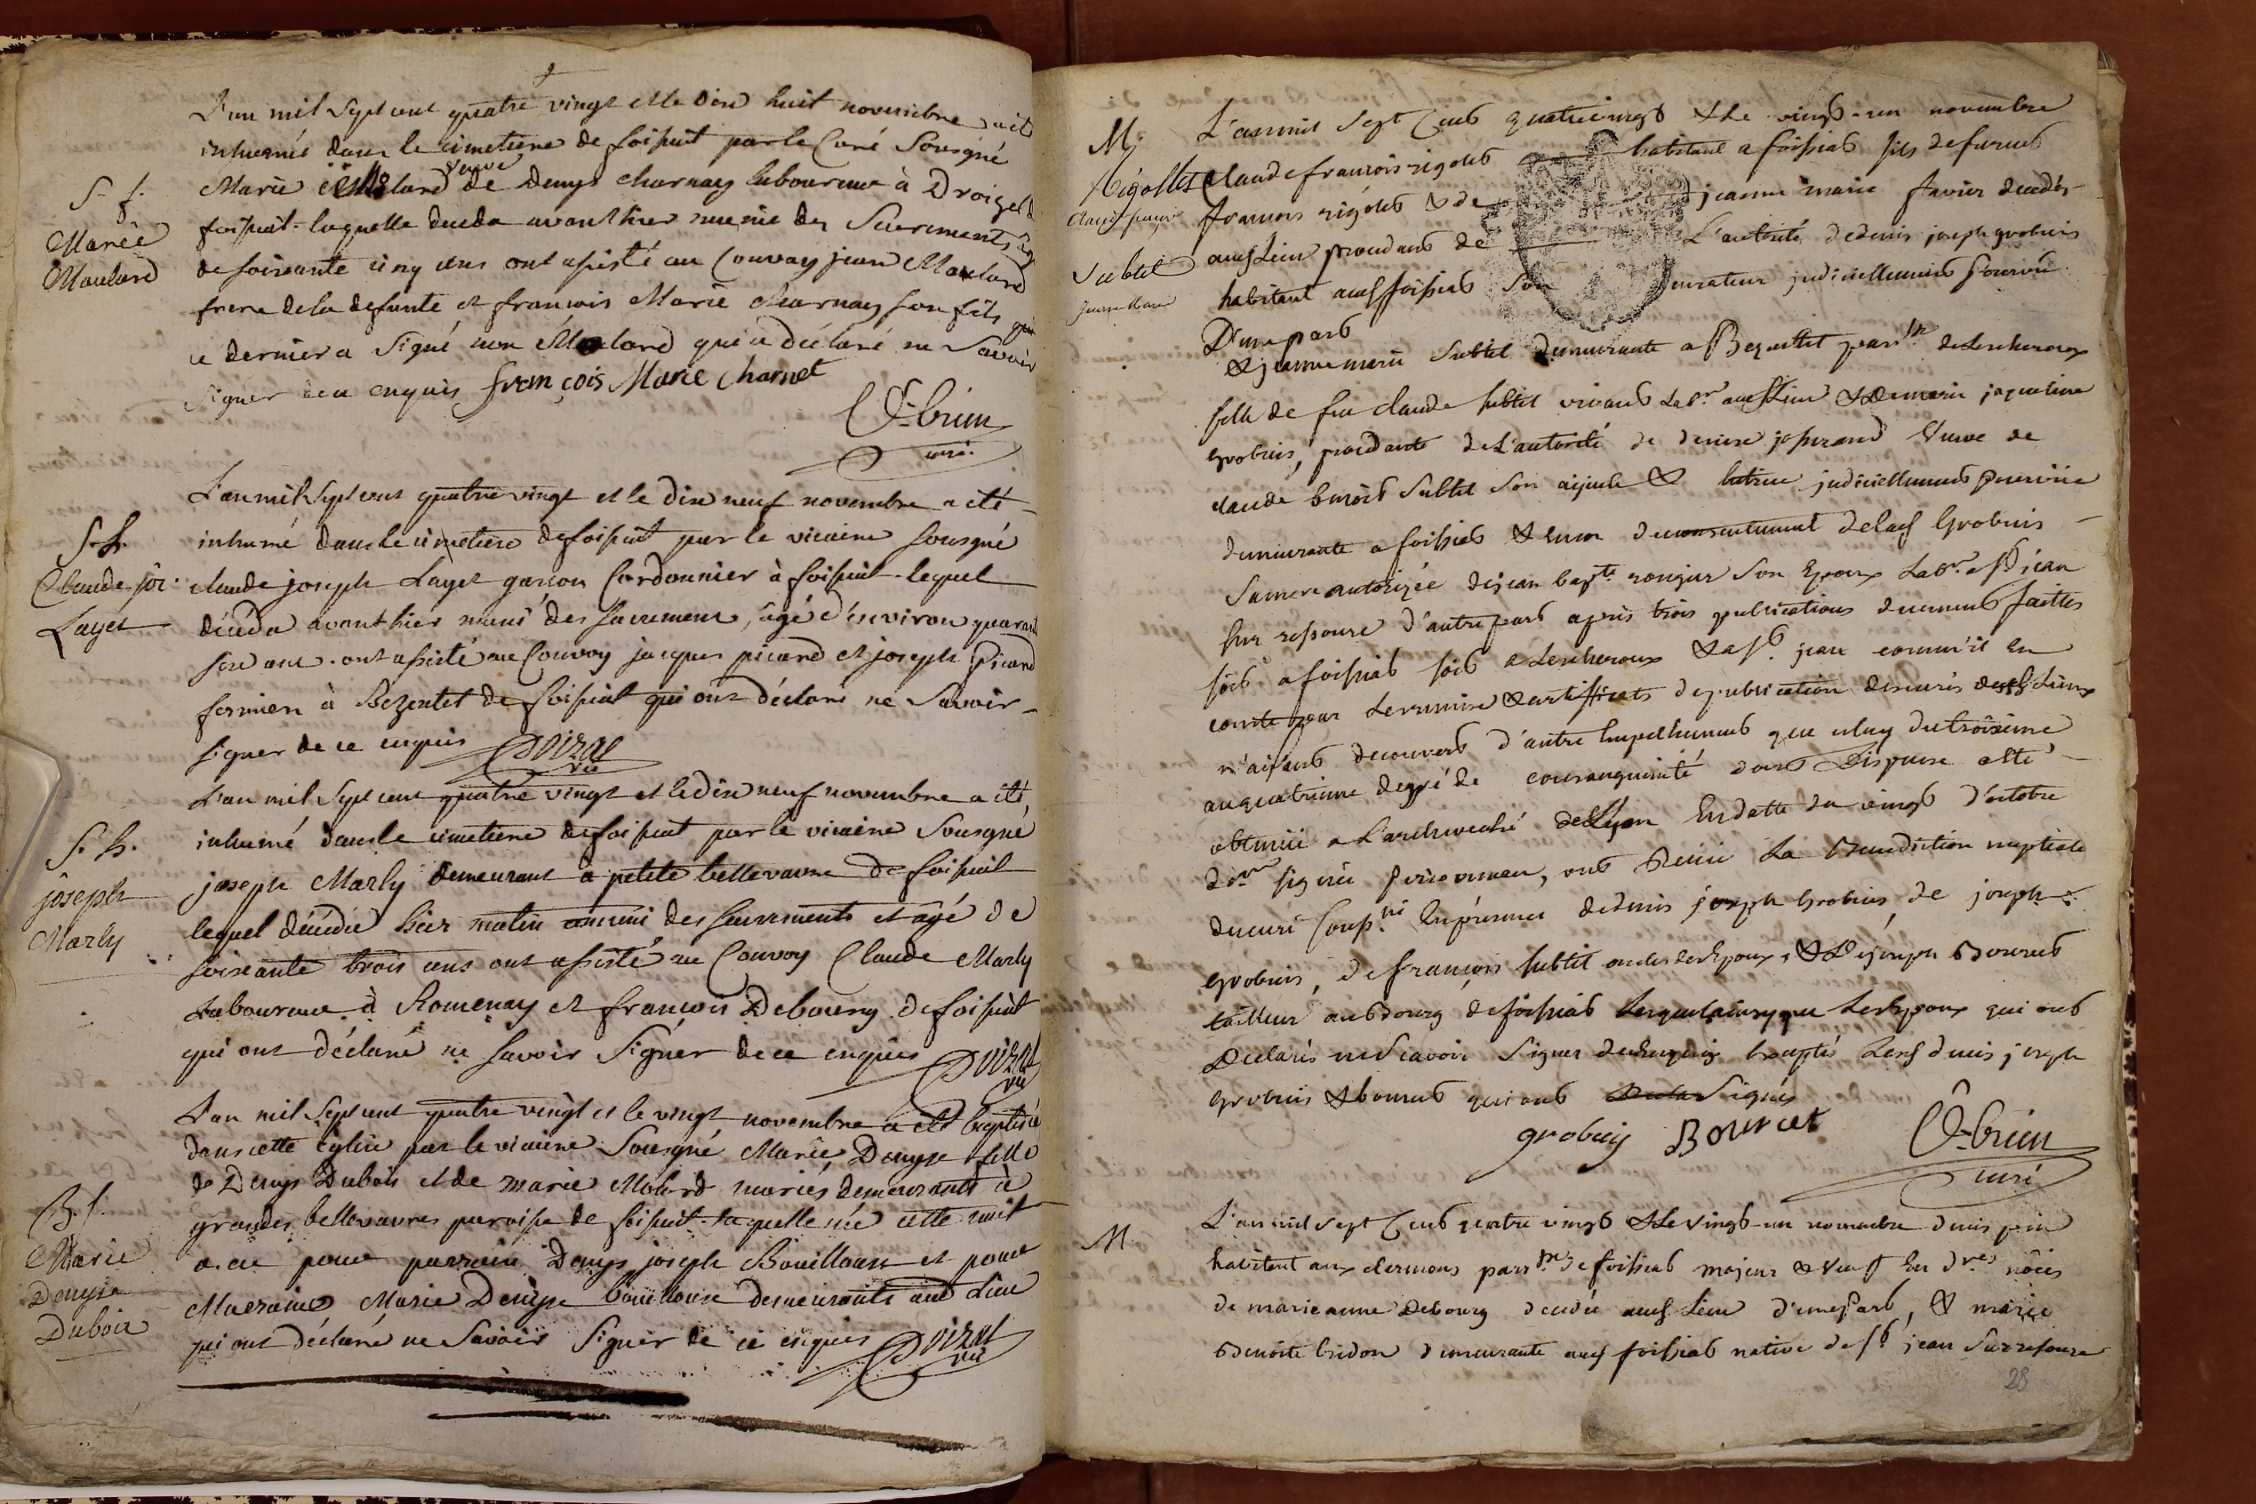 L'an mil sept cent quatre vingt et le dix huit novembre a été
inhumée dans le cimetiere de foissiat par le Curé Sousigné
Marie Moulard veuve de Denys charnay laboureur à
foissiat laquelle deceda avant hier munie des Sacrements
de soixante cinq ans ont assisté au Convoy jean Moulard
frere de la defunte et francois Marie charnay son fils qui
ce dernier a signé non Moulard qui a déclaré ne Savoir
signer de ce enquis françois Marie Charnet
O-brien
curé
S. f.
Marie
Moulard
L'an mil sept cent quatre vingt et le dix neuf novembre a été
inhumé dans le cimetiere de foissiat par le vicaire sousigné
claude joseph Layet garçon Cordonnier à foissiat lequel
décéda avant hier muni des sacremens, agé d'environ quarante
ans ont assisté au Convoy jacques picard et joseph Picard
fermiers à Bezentet de foissiat qui ont déclaré ne Savoir
signer de ce enquis Doizat
vic
S. h.
Claude jos.
Layet
L'an mil sept cent quatre vingt et le dix neuf novembre a été
inhumé dans le cimetiere de foissiat par le vicaire Sousigné
joseph Marly demeurant à petite bellevavre de foissiat
lequel décédé hier matin muni des sacrements et agé de
soixante trois ans ont assisté au Convoy Claude Marly
Laboureur à Romenay et françois Debourg de foissiat
qui ont déclaré ne savoir signer de ce enquis Doizat
vic
S. h.
joseph
Marly
L'an mil sept cent quatre vingt et le vingt novembre a été baptisée
dans cette église par le vicaire Sousigné Marie Denyse fille
de Denys Dubois et de marie Molard mariés demeurants à
grandes bellevavres paroisse de foissiat laquelle née cette nuit
a eu pour parrain Denys joseph Bouilloux et pour
Marraine Marie Denyse bouilloux demeurants aud Lieu
qui ont déclaré ne Savoir signer de ce enquis Doizat
vic
B. f.
Marie
Denyse
Dubois
M.
Rigollet
Claude françois
Subtil
jeanne Marie
L'an mil sept Cent quatrevingt & le vingt-un novembre
Claude francois rigolet habitant a foissiat fils de furent
francois rigolet & de jeanne marie favier decedés
aud Lieu procedant de L'autorité de denis joseph grobuis
habitant aud foissiat son curateur judiciellement pourvu
D'une part
& jeanne marie Subtil demeurante a Bezentet par.se de Lescheroux
fille de feu claude subtil vivant Lab.r aud Lieu & De marie jaqueline
grobuis, procedante de L'autorité de denise josserand Veuve de
claude benoit Subtil son aijeule & tutrice judiciellement pourvüe
demeurante a foissiat & encor du consentement de lad Grobuis
Sa mere autorizée de jean bap.te rongier Son Epoux Lab.r a S.t jean
sur ressouze d'autre part apres trois publications dument faittes
soit a foissiat soit a Lescheroux & a S.t jean comm'il en
conste par Les remise & certifficats de publication des curés desd Lieux
n'aijant decouvert d'autre Empechement que celuy du troisieme
au quatrieme degré de consanguinité dont Dispense a été
obtenüe a L'archeveché de Lyon En datte du vingt d'octobre
d.er signée, ont Recüe La Benediction nuptiale
du curé Soussi.né En presence de denis joseph Grobuis de joseph
Grobuis, de francois subtil oncles des Epoux, & De joseph Bourcet
tailleur au bourg de foissiat Lesquels ainsy que Les Epoux qui ont
Declarés ne Scavoir Signer de ce Enquis Exceptés Lesd denis joseph
Grobuis & bourcet qui ont Signés
grobuis Bourcet O-brien
curé
M.
L'an mil Sept Cent quatre vingt & le vingt-un novembre denis
habitant aux clermons parr.se de foissiat majeur & Veuf En d.res nôces
de marieanne Debourg decedée aud Lieu d'une part, & marie
benoite bridon demeurante aud foissiat native de S.t jean Sur ressouze
28